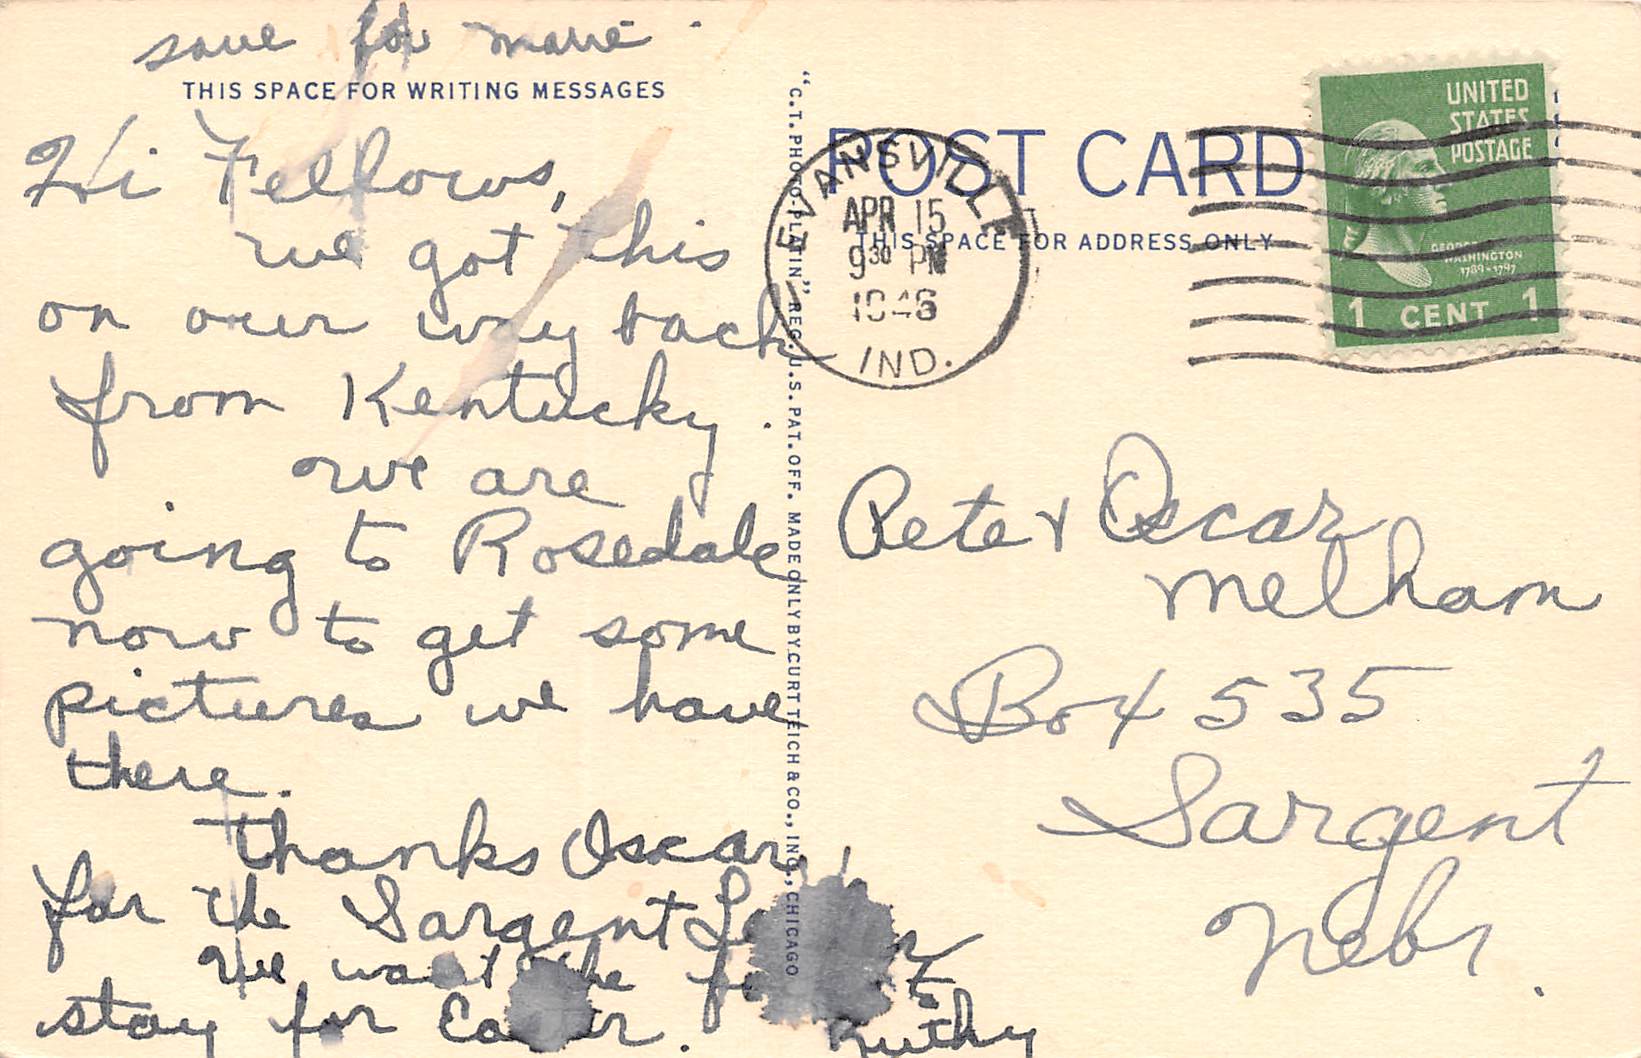 save for marie
THIS SPACE FOR WRITING MESSAGES
Hi Fellows,
we got this
on our way back
from Kentucky.
we are
going to Rosedale
now to get some
pictures we have
there.
Thanks Oscar,
for the Sargent
We want the
stay for Easter.
Ruthy
"C.T. PHOTO-PLATIN" REG. U.S. PAT. OFF. MADE ONLY BY CURT TEICH & CO., INC., CHICAGO
POST CARD
THIS SPACE FOR ADDRESS ONLY
EVANSVILLE
APR 15
9 30 PM
1946
IND.
UNITED
STATES
POSTAGE
GEORGE
WASHINGTON
1789-1797
1 CENT 1
Pete & Oscar
Melham
Box 535
Sargent
Nebr.